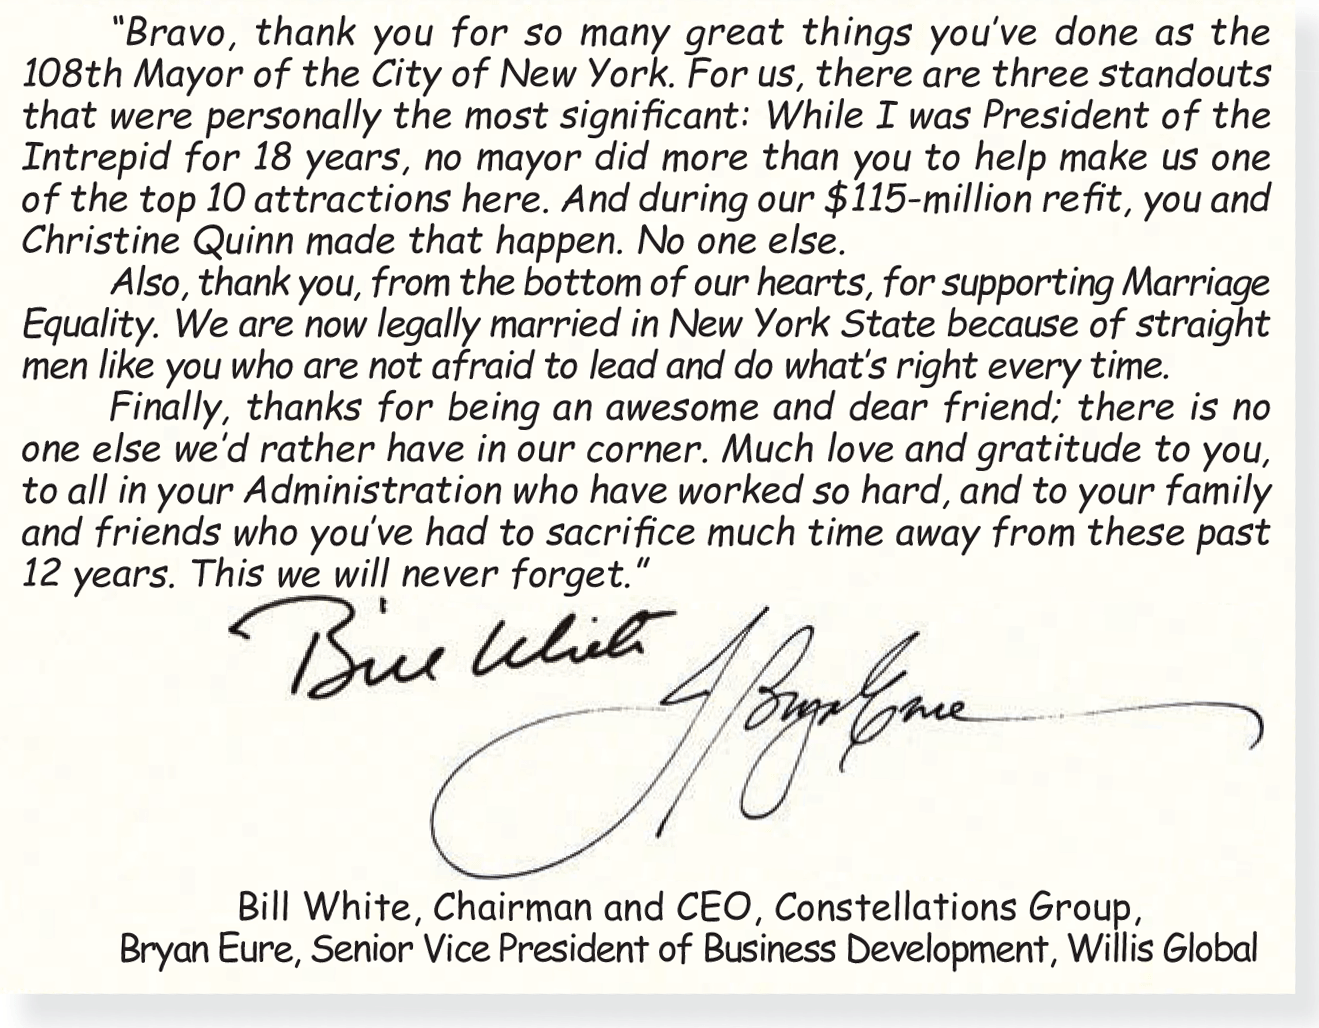 "Bravo, thank you for so many great things you've done as the
108th Mayor of the City of New York. For us, there are three standouts
that were personally the most significant: While I was President of the
Intrepid for 18 years, no mayor did more than you to help make us one
of the top 10 attractions here. And during our $115-million refit, you and
Christine Quinn made that happen. No one else.
Also, thank you, from the bottom of our hearts, for supporting Marriage
Equality. We are now legally married in New York State because of straight
men like you who are not afraid to lead and do what's right every time.
Finally, thanks for being an awesome and dear friend; there is no
one else we'd rather have in our corner. Much love and gratitude to you,
to all in your Administration who have worked so hard, and to your family
and friends who you've had to sacrifice much time away from these past
12 years. This we will never forget."
Bill White J Bryan Eure
Bill White, Chairman and CEO, Constellations Group,
Bryan Eure, Senior Vice President of Business Development, Willis Global